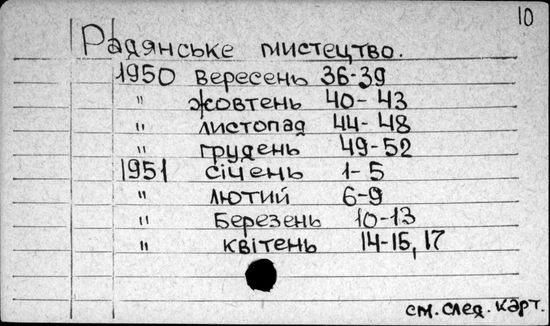 10
Радянське мистецтво.
1950 вересень 36-39
" жовтень 40-43
" листопад 44-48
" грудень 49-52
1951 січень 1-5
" лютий 6-9
" Березень 10-13
" квітень 14-15, 17
см. след. карт.